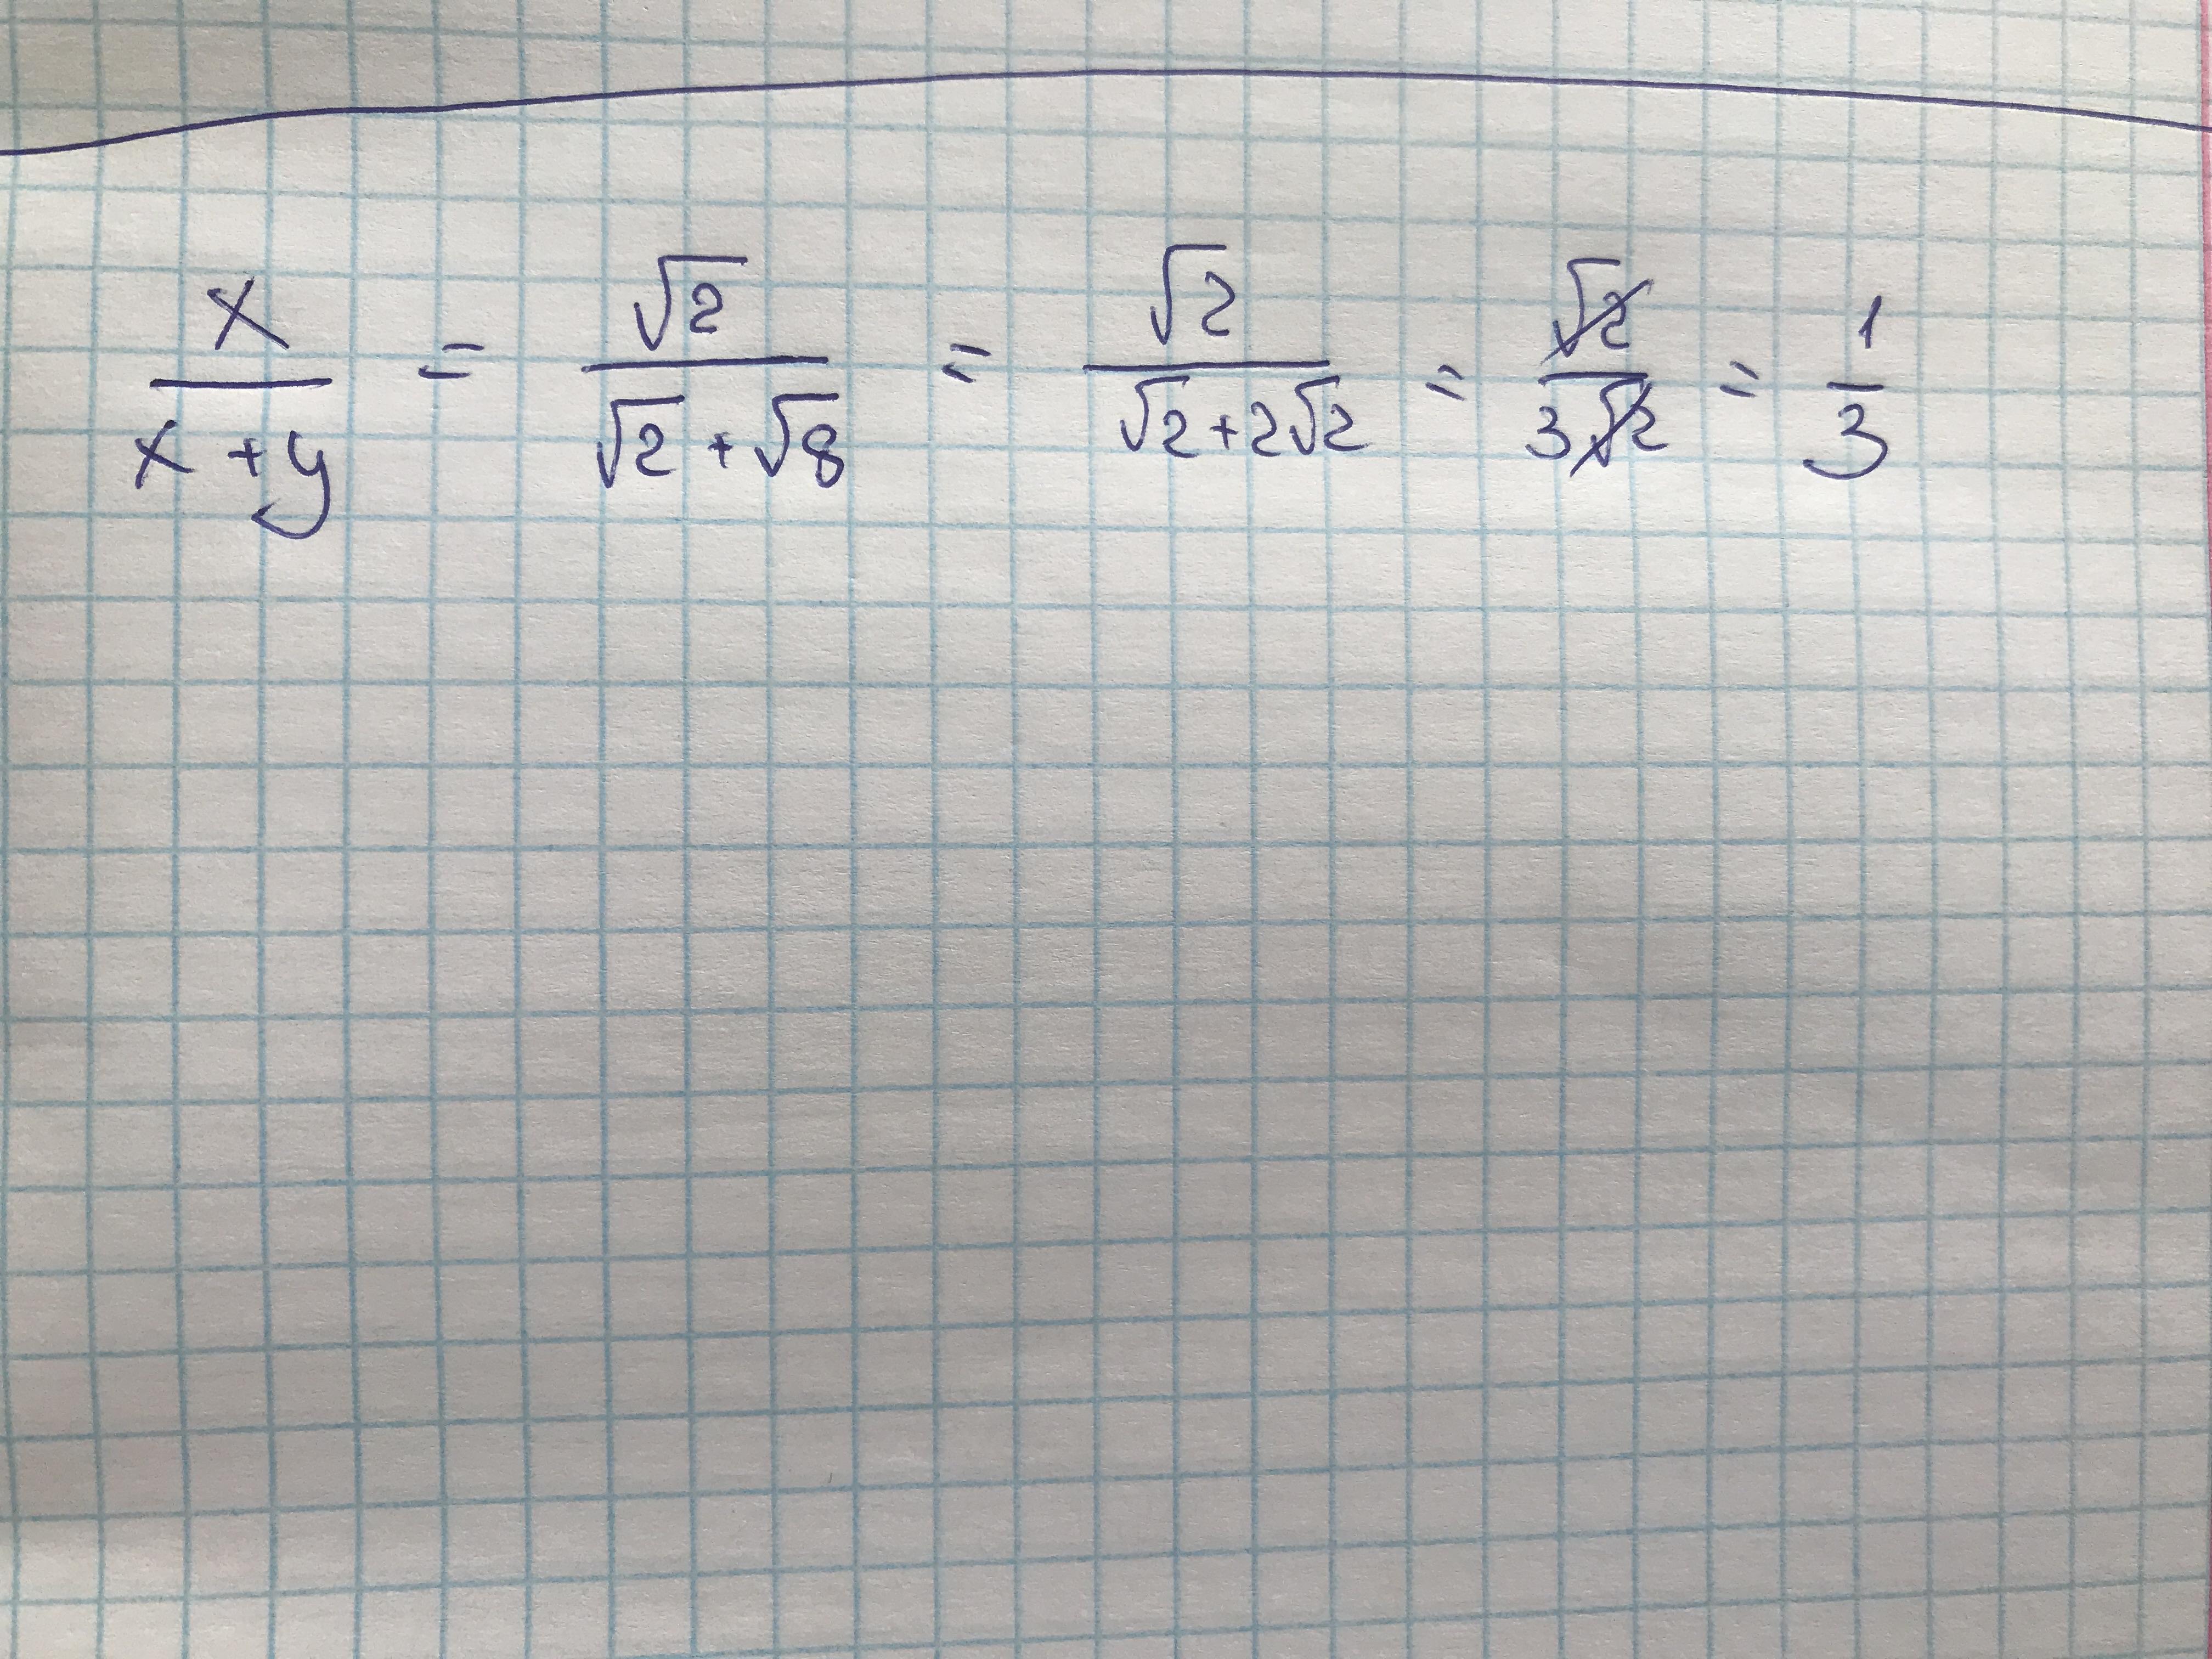 x/(x+y) = √2/(√2+√8) = √2/(√2+2√2) = √2/(3√2) = 1/3